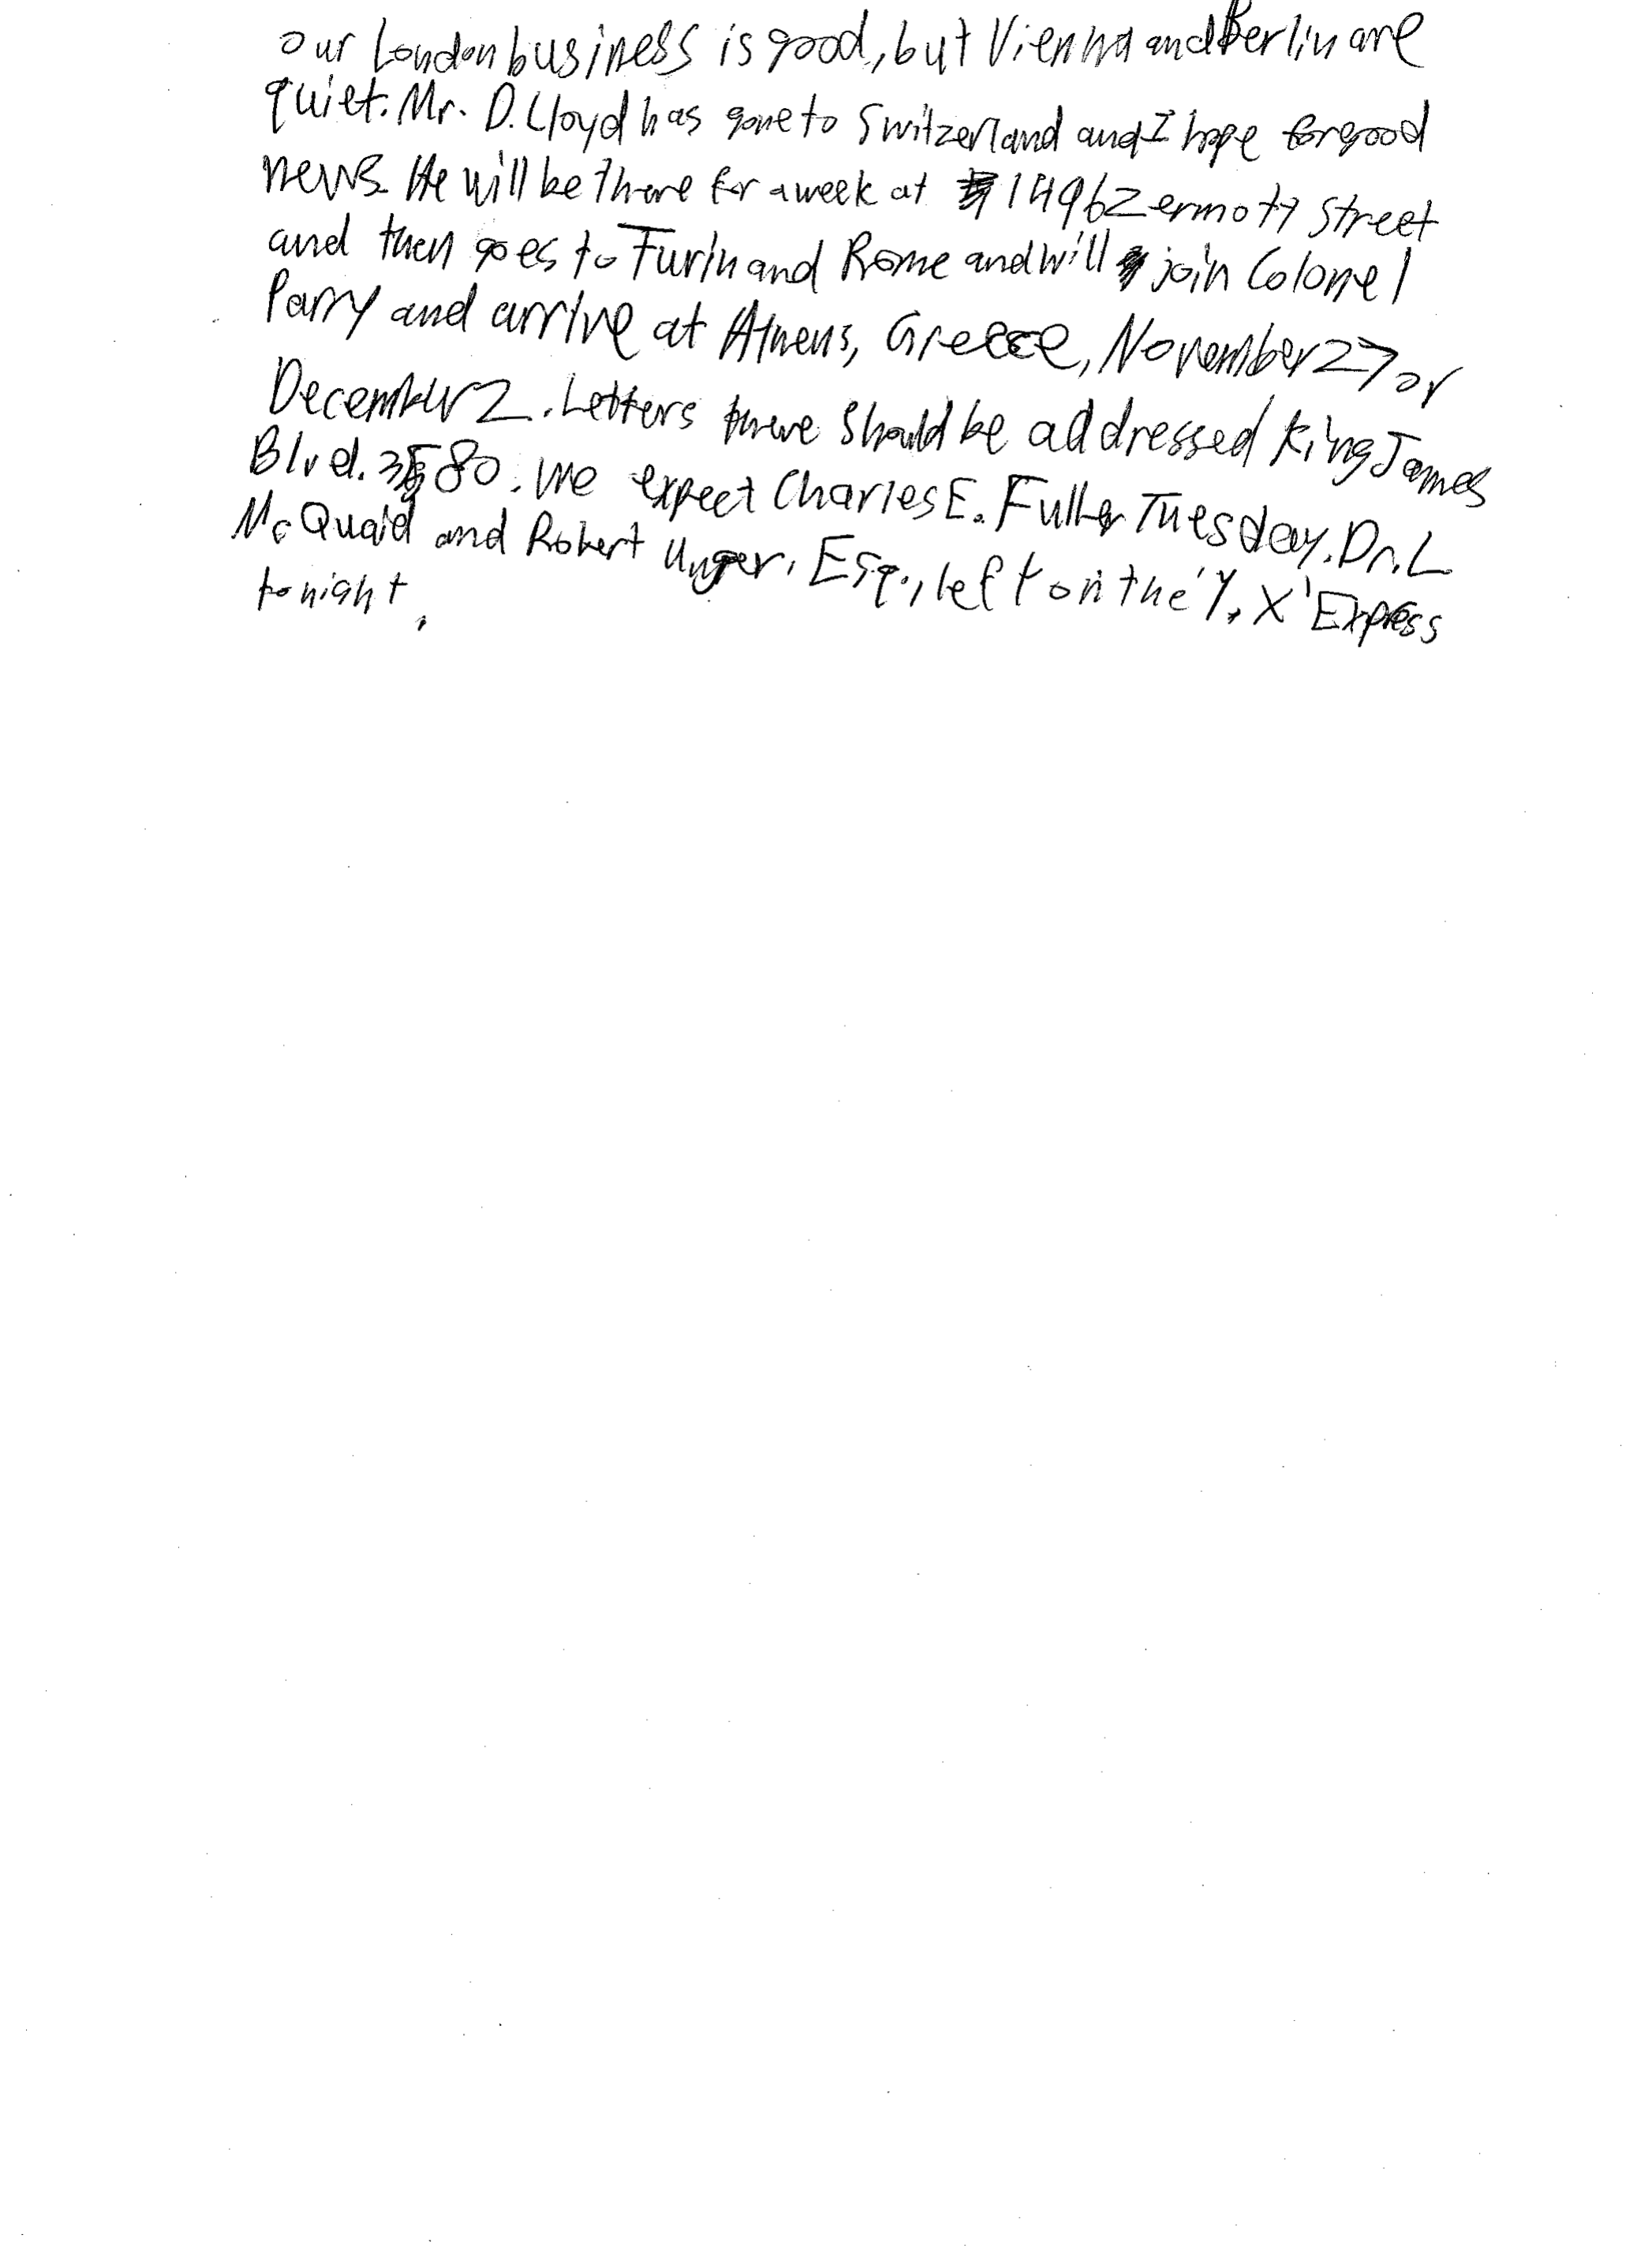 our London business is good, but Vienna and Berlin are
quiet. Mr. D. Lloyd has gone to Switzerland and I hope for good
news. He will be there for a week at 1496 Zermott Street
and then goes to Turin and Rome and will join Colonel
Parry and arrive at Athens, Greece, November 27 or
December 2. Letters there should be addressed King James
Blvd. 3580. We expect Charles E. Fuller Tuesday. Dr. L
McQuaid and Robert Unger, Esq., left on the 'Y. X' Express
tonight.